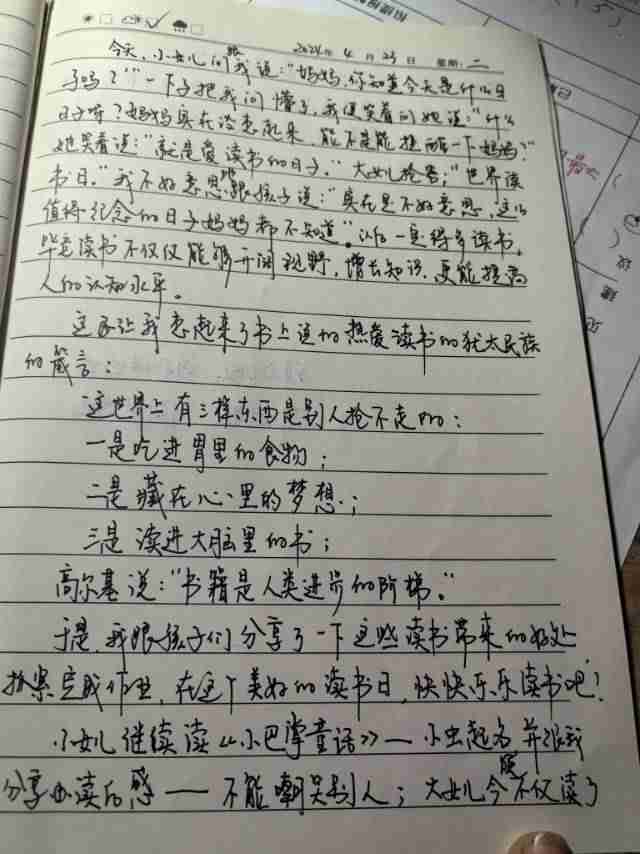 2024年 4月 23日 星期:二
今天,小女儿问我说:"妈妈,你知道今天是什么日
子吗?"一下子把我问懵了,我便笑着问她说:"什么
日子呀?妈妈实在没想起来,能不能提醒一下妈妈?"
她笑着说:"就是爱读书的日子。"大女儿抢答:"世界读
书日。"我不好意思跟孩子说:"实在是不好意思,这么
值得纪念的日子妈妈都不知道"。以后一定得多读书,
毕竟读书不仅仅能够开阔视野,增长知识,更能提高
人的认知水平。
这不让我想起来了书上说的热爱读书的犹太民族
的箴言:
这世界上有三样东西是别人抢不走的:
一是吃进胃里的食物;
二是藏在心里的梦想;
三是读进大脑里的书;
高尔基说:"书籍是人类进步的阶梯。"
于是,我跟孩子们分享了一下这些读书带来的好处
抓紧完成作业,在这个美好的读书日,快快乐乐读书吧!
小女儿继续读《小巴掌童话》—小虫起名并跟我
分享了读后感——不能嘲笑别人;大女儿今晚不仅读了